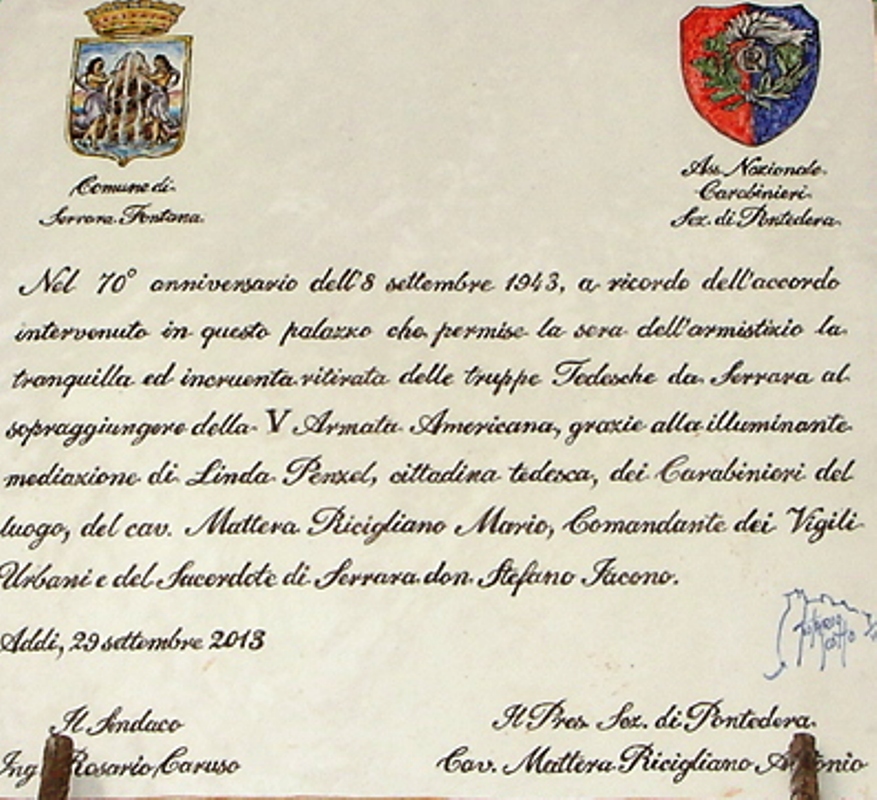 Comune di
Serrara Fontana
Ass. Nazionale
Carabinieri
Sez. di Pontedera
Nel 70° anniversario dell'8 settembre 1943, a ricordo dell'accordo
intervenuto in questo palazzo che permise la sera dell'armistizio la
tranquilla ed incruenta ritirata delle truppe Tedesche da Serrara al
sopraggiungere della V Armata Americana, grazie alla illuminante
mediazione di Linda Penzel, cittadina tedesca, dei Carabinieri del
luogo, del cav. Mattera Ricigliano Mario, Comandante dei Vigili
Urbani e del Sacerdote di Serrara don Stefano Iacono.
Addi, 29 settembre 2013
Il Sindaco
Ing. Rosario Caruso
Il Pres. Sez. di Pontedera
Cav. Mattera Ricigliano Antonio